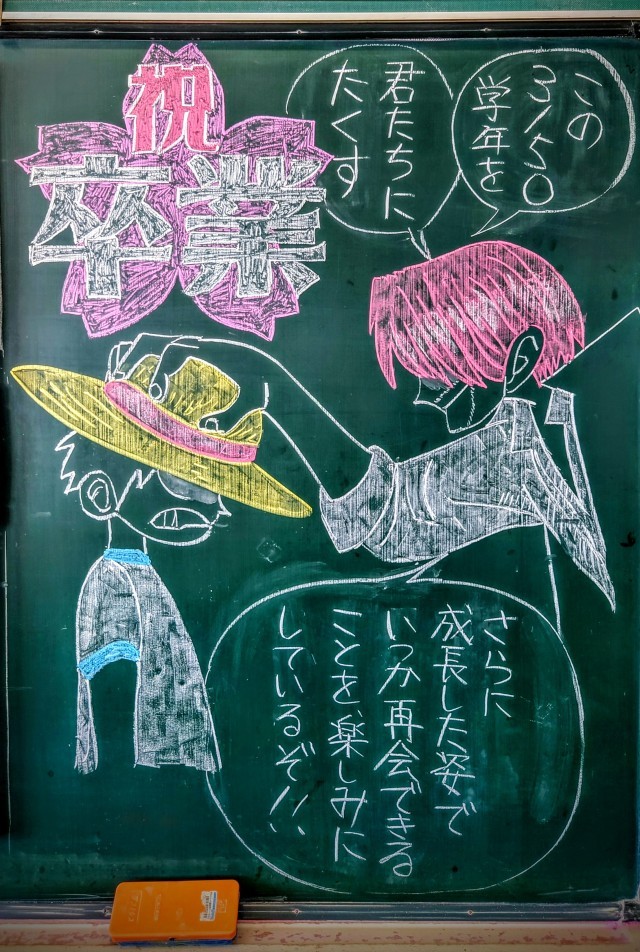 祝
卒業
この
3/50
学年を
君たちに
たくす
さらに
成長した姿で
いつか再会できる
ことを楽しみに
しているぞ!!